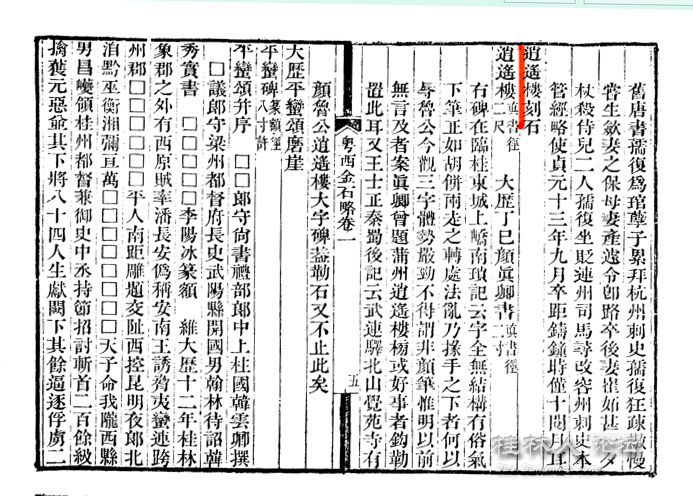 舊唐書孺復爲琯孽子累拜杭州刺史孺復狂疎傲慢
嘗生歛妻之保母妻產遽令卽路卒後妻崔妬甚一夕
杖殺侍兒二人孺復坐貶連州司馬尋改容州刺史本
管經略使貞元十三年九月卒距鑄鐘時僅十閱月耳
逍遙樓刻石
逍遙樓眞書徑二尺 大歷丁巳顏眞卿書眞書徑二寸
右碑在臨桂東城上嶠南瑣記云字全無結構有俗氣
下筆正如胡併兩走之轉處法亂乃搽手之下者何以
辱魯公今觀三字體勢嚴勁不得謂非顏筆惟明以前
無言及者案眞卿曾題蒲州逍遙樓榜或好事者鉤勒
置此耳又王士正秦蜀後記云武連驛北山覺苑寺有
粵西金石略卷一
五
顏魯公逍遙樓大字碑葢勒石又不止此矣
大歷平蠻頌磨崖
平蠻碑篆額徑八寸許
平蠻頌并序 □□郞守尙書禮部郞中上柱國韓雲卿撰
□議郞守梁州都督府長史武陽縣開國男翰林待詔韓
秀實書 □□□□李陽冰篆額 維大歷十二年桂林
象郡之外有西原賊率潘長安僞稱安南王誘脅夷蠻連跨
州郡□□□□□□平人南距雕題交趾西控昆明夜郞北
洎黔巫衡湘彌亘萬□□□□□□天子命我隴西縣
男昌巙領桂州都督兼御史中丞持節招討斬首二百餘級
擒獲元惡并其下將八十四人生獻闕下其餘逼逐俘虜二
桂林人